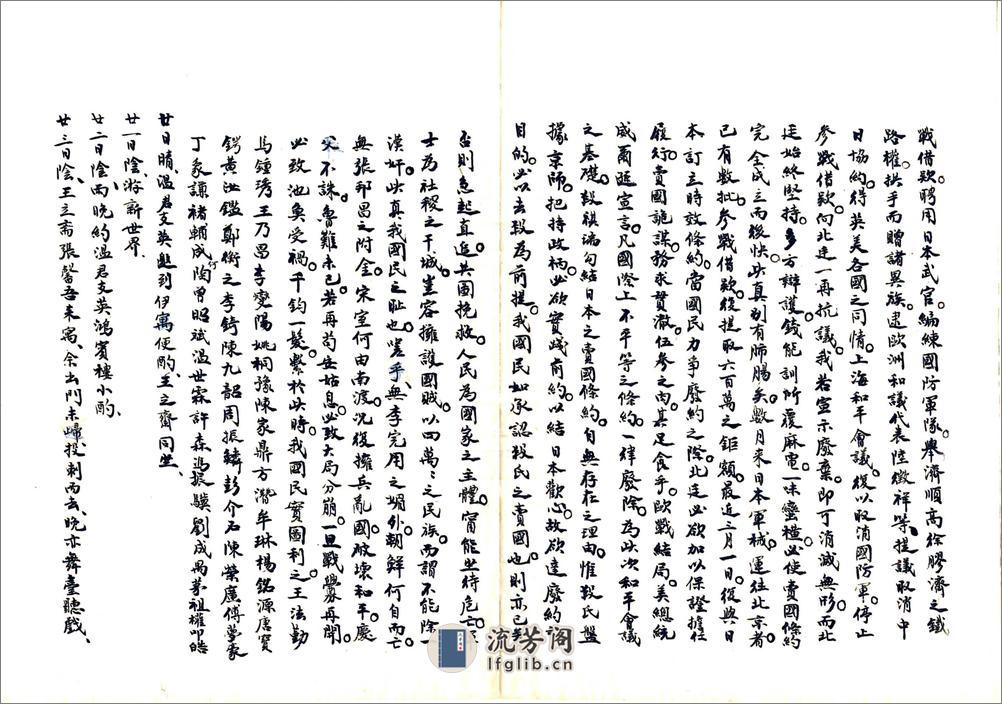 戰借欵聘用日本武官。編練國防軍隊。舉濟順高徐膠濟之鐵
路權。拱手而贈諸異族。逮歐洲和議代表陸徵祥等。提議取消中
日協約。得英美各國之同情。上海和平會議。復以取消國防軍。停止
參戰借欵。向北廷一再抗議。我若宣示廢棄。即可消滅無形。而北
廷始終堅持。多方辯護。錢能訓所覆麻電。一味蠻橫。必使賣國條約
完全成立而後快。此真別有肺腸矣。數月來日本軍械。運往北京者
已有數批。參戰借欵。復提取六百萬之鉅額。最近三月一日。復與日
本訂立時效條約。當國民力爭廢約之際。北廷必欲加以保證擔任
履行。賣國詭謀。務求貫徹。伍參之肉。其足食乎。歐戰結局。美總統
威爾遜宣言。凡國際上不平等之條約。一律廢除。為此次和平會議
之基礎。段祺瑞勾結日本之賣國條約。自無存在之理由。惟段氏盤
據京師。把持政柄。必欲實踐前約。以結日本歡心。故欲達廢約
目的。必以去段為前提。我國民如承認段氏之賣國也。則亦已矣
否則急起直追。共圖挽救。人民為國家之主體。甯能坐待危亡。軍
士為社稷之干城。豈容擁護國賊。以四萬萬之民族。而謂不能除一
漢奸。此真我國民之耻也。嗟乎。無李完用之媚外。朝鮮何自而亡
無張邦昌之附金。宋室何由南渡。況復擁兵亂國。破壞和平。慶
父不誅。魯難未已。若再苟安姑息。必致大局分崩。一旦戰釁再開
必致池魚受禍。千鈞一髮。繫於此時。我國民實圖利之。王法勤
馬鍾琇王乃昌李燮陽姚桐豫陳家鼎方潛牟琳楊銘源唐寶
鍔黃汝鑑鄭衡之李錡陳九韶周振麟彭介石陳榮廣傅夢豪
丁象謙褚輔成陶曾昭斌溫世霖許森馮振驥劉成禺茅祖權叩皓
廿日晴、溫君支英邀到伊寓便酌、王立齋同坐
廿一日陰、游新世界
廿二日陰雨、晚約溫君支英鴻賓樓小酌、
廿三日陰、王立齋張馨吾來寓、余出門未歸、投刺而去、晚亦舞臺聽戲、
流芳阁
lfglib.cn